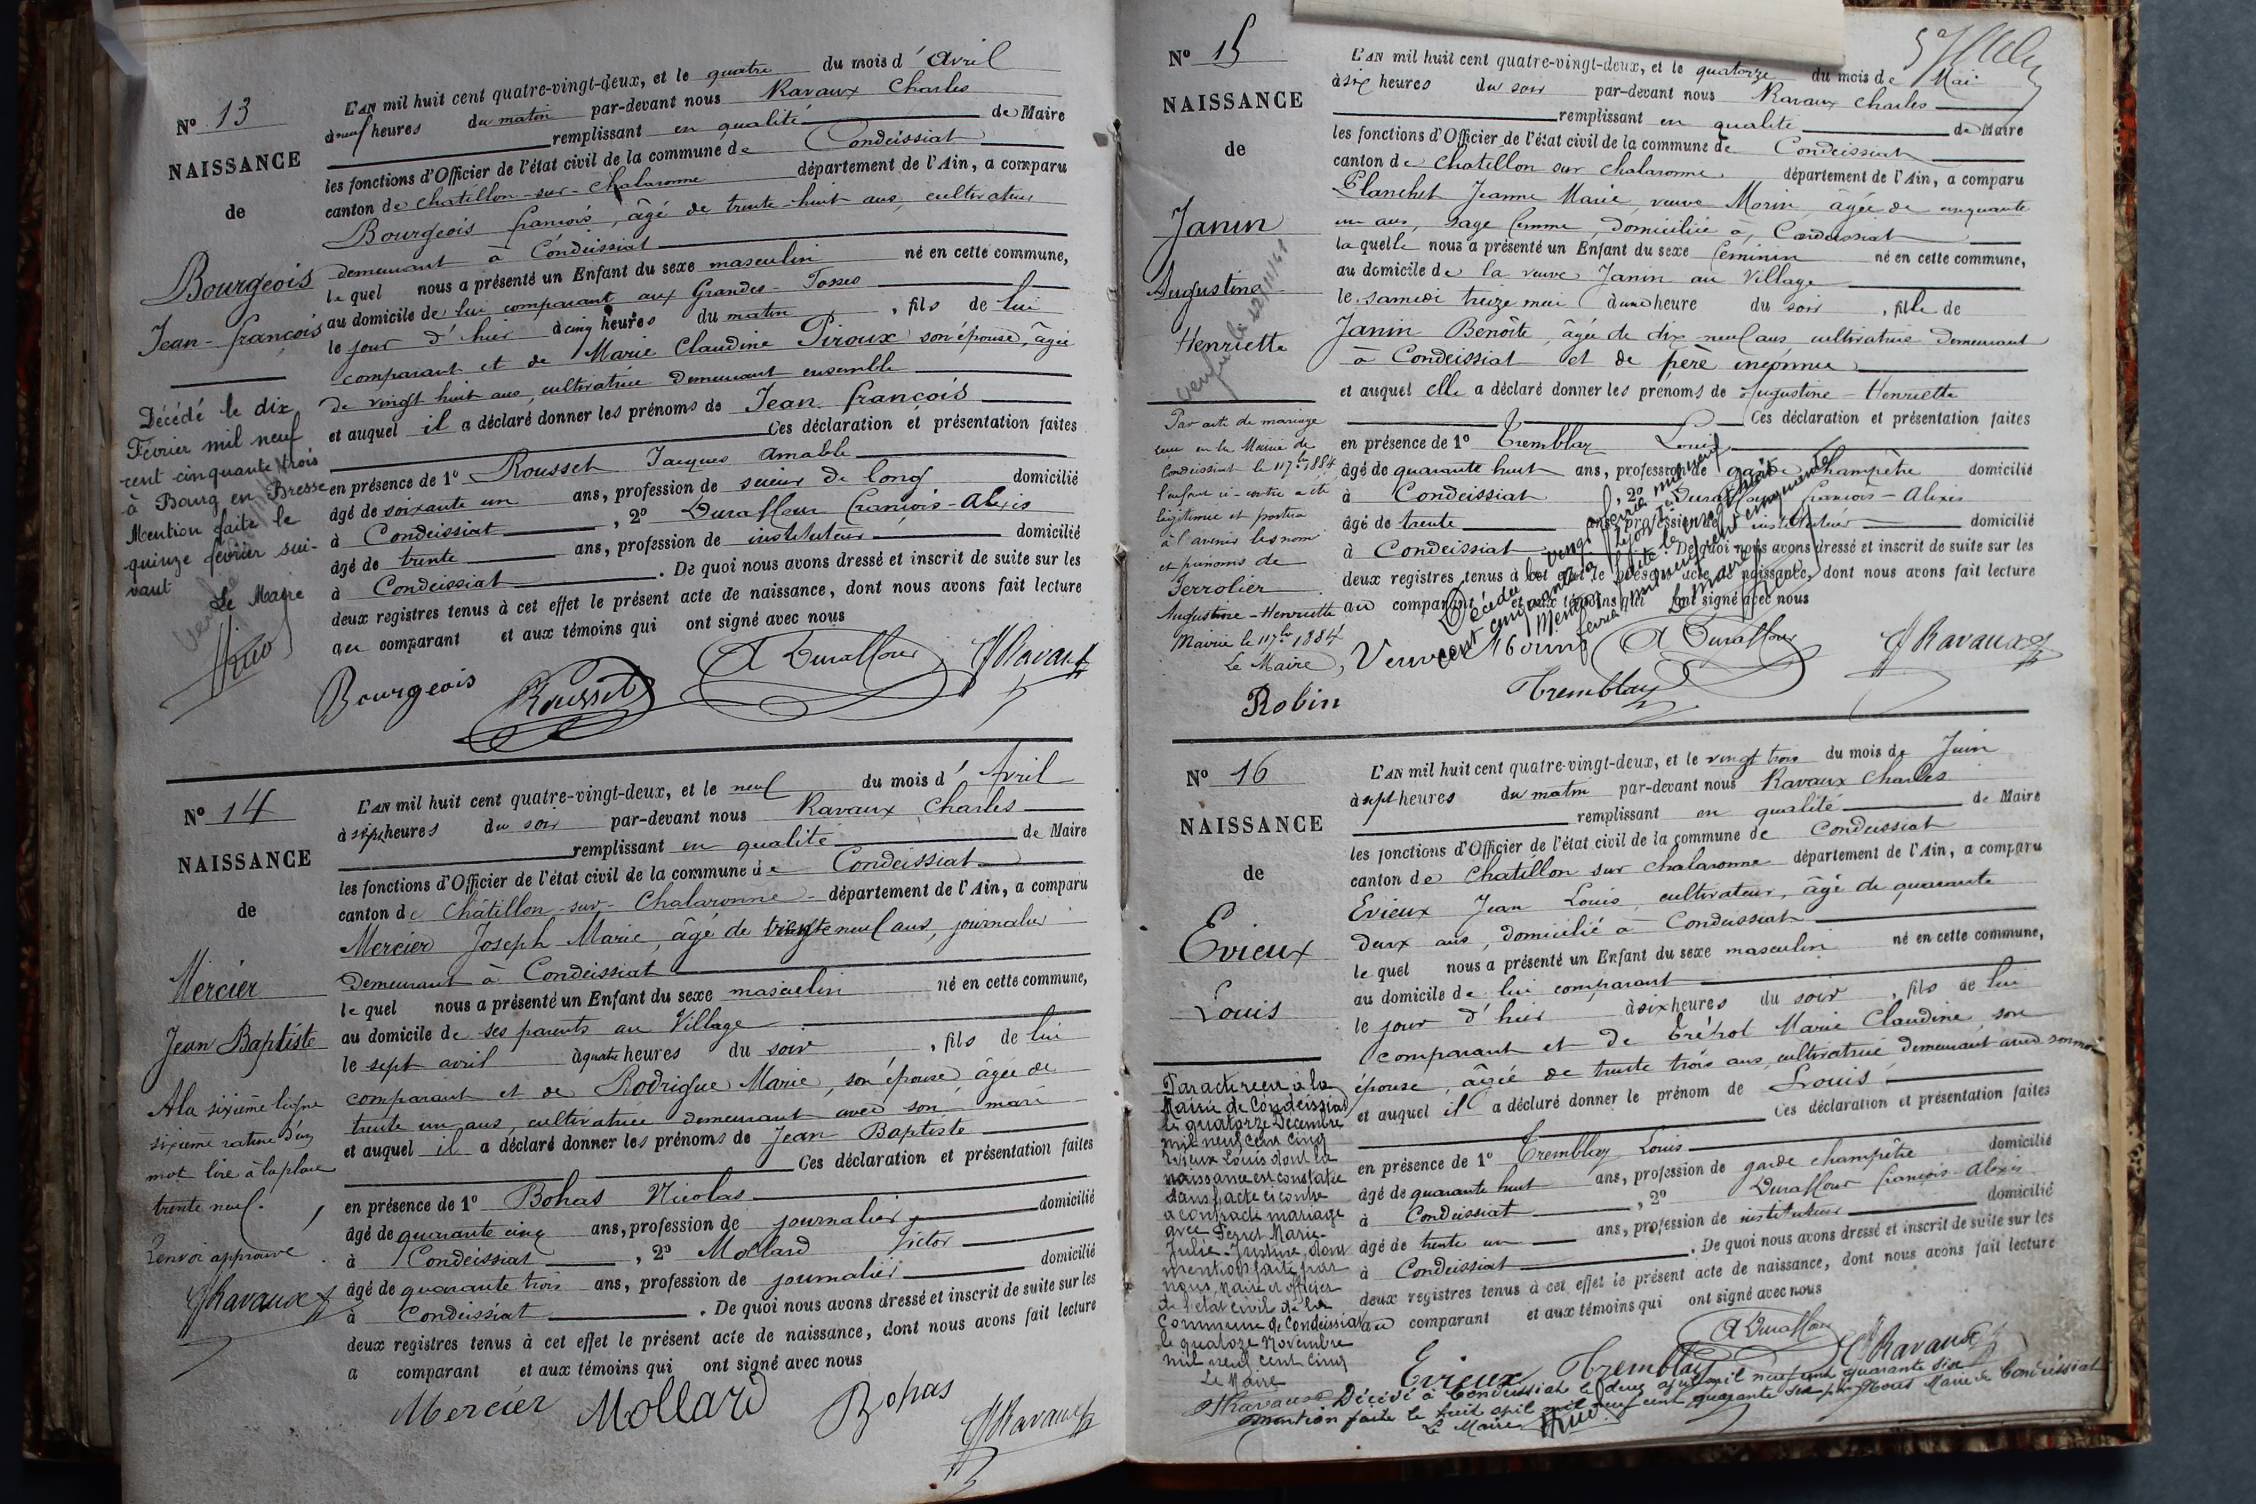 N° 13
NAISSANCE
de
Bourgeois
Jean-françois
Décédé le dix
Février mil neuf
cent cinquante trois
à Bourg en Bresse
Mention faite le
quinze février sui-
vant
Le Maire
L'AN mil huit cent quatre-vingt-deux, et le quatre du mois d' Avril
à neuf heures du matin par-devant nous Ravaux Charles
remplissant en qualité de Maire
les fonctions d'Officier de l'état civil de la commune de Condeissiat
canton de Chatillon-sur-Chalaronne département de l'Ain, a comparu
Bourgeois françois, âgé de trente-huit ans, cultivateur
demeurant à Condeissiat
lequel nous a présenté un Enfant du sexe masculin né en cette commune,
au domicile de lui comparant aux Grandes-Fosses
le jour d'hier à cinq heures du matin, fils de lui
comparant et de Marie Claudine Piroux son épouse, âgée
de vingt huit ans, cultivatrice demeurant ensemble
et auquel il a déclaré donner les prénoms de Jean françois
Ces déclaration et présentation faites
en présence de 1° Rousset Jacques Amable
âgé de soixante un ans, profession de scieur de long domicilié
à Condeissiat, 2° Duraffour François-Alexis
âgé de trente ans, profession de instituteur domicilié
à Condeissiat. De quoi nous avons dressé et inscrit de suite sur les
deux registres tenus à cet effet le présent acte de naissance, dont nous avons fait lecture
au comparant et aux témoins qui ont signé avec nous
Bourgeois Rousset A Duraffour Ravaux
N° 14
NAISSANCE
de
Mercier
Jean Baptiste
A la sixième ligne
sixième rature d'un
mot lire à la place
trente neuf.
Renvoi approuvé
Ravaux
L'AN mil huit cent quatre-vingt-deux, et le neuf du mois d' Avril
à six heures du soir par-devant nous Ravaux Charles
remplissant en qualité de Maire
les fonctions d'Officier de l'état civil de la commune de Condeissiat
canton de Châtillon-sur-Chalaronne département de l'Ain, a comparu
Mercier Joseph Marie, âgé de trente neuf ans, journalier
demeurant à Condeissiat
lequel nous a présenté un Enfant du sexe masculin né en cette commune,
au domicile de ses parents au Village
le sept avril à quatre heures du soir, fils de lui
comparant et de Rodrigue Marie, son épouse âgée de
trente un ans, cultivatrice demeurant avec son mari
et auquel il a déclaré donner les prénoms de Jean Baptiste
Ces déclaration et présentation faites
en présence de 1° Bohas Nicolas
âgé de quarante cinq ans, profession de journalier domicilié
à Condeissiat, 2° Mollard Victor
âgé de quarante trois ans, profession de journalier domicilié
à Condeissiat. De quoi nous avons dressé et inscrit de suite sur les
deux registres tenus à cet effet le présent acte de naissance, dont nous avons fait lecture
a comparant et aux témoins qui ont signé avec nous
Mercier Mollard Bohas Ravaux
N° 15
NAISSANCE
de
Janin
Augustine
Henriette
Par acte de mariage
reçu en la Mairie de
Condeissiat le 11 7bre 1884
l'enfant ci-contre a été
légitimée et portera
à l'avenir les nom
et prénoms de
Ferrolier
Augustine-Henriette
Mairie le 11 7bre 1884
Le Maire,
Robin
L'AN mil huit cent quatre-vingt-deux, et le quatorze du mois de Mai
à six heures du soir par-devant nous Ravaux Charles
remplissant en qualité de Maire
les fonctions d'Officier de l'état civil de la commune de Condeissiat
canton de Chatillon sur Chalaronne département de l'Ain, a comparu
Planchet Jeanne Marie, veuve Morin, âgée de cinquante
un ans, sage femme, domiciliée à Condeissiat
laquelle nous a présenté un Enfant du sexe féminin né en cette commune,
au domicile de la veuve Janin au Village
le samedi treize mai à une heure du soir, fille de
Janin Benoîte, âgée de dix-neuf ans cultivatrice demeurant
à Condeissiat et de père inconnu
et auquel elle a déclaré donner les prénoms de Augustine-Henriette
Ces déclaration et présentation faites
en présence de 1° Tremblay Louis
âgé de quarante huit ans, profession de garde champêtre domicilié
à Condeissiat, 2° Duraffour françois-Alexis
âgé de trente ans, profession de instituteur domicilié
à Condeissiat. De quoi nous avons dressé et inscrit de suite sur les
deux registres tenus à cet effet le présent acte de naissance, dont nous avons fait lecture
au comparant et aux témoins qui ont signé avec nous
Veuve Morin A Duraffour Ravaux
Tremblay
N° 16
NAISSANCE
de
Evieux
Louis
Par acte reçu à la
Mairie de Condeissiat
le quatorze Décembre
mil neuf cent cinq
Evieux Louis dont la
naissance est constatée
dans l'acte ci contre
a contracté mariage
avec Peyret Marie-
Julie-Justine, dont
mention faite par
nous, Maire et officier
de l'état civil de la
Commune de Condeissiat
le quatoze Novembre
mil neuf cent cinq
Le Maire
Ravaux
L'AN mil huit cent quatre-vingt-deux, et le vingt trois du mois de Juin
à sept heures du matin par-devant nous Ravaux Charles
remplissant en qualité de Maire
les fonctions d'Officier de l'état civil de la commune de Condeissiat
canton de Chatillon sur Chalaronne département de l'Ain, a comparu
Evieux Jean Louis, cultivateur, âgé de quarante
deux ans, domicilié à Condeissiat
lequel nous a présenté un Enfant du sexe masculin né en cette commune,
au domicile de lui comparant
le jour d'hier à six heures du soir, fils de lui
comparant et de Tréhol Marie Claudine, son
épouse, âgée de trente trois ans, cultivatrice demeurant avec son mari
et auquel il a déclaré donner le prénom de Louis
Ces déclaration et présentation faites
en présence de 1° Tremblay Louis
âgé de quarante huit ans, profession de garde champêtre domicilié
à Condeissiat, 2° Duraffour françois-Alexis
âgé de trente un ans, profession de instituteur domicilié
à Condeissiat. De quoi nous avons dressé et inscrit de suite sur les
deux registres tenus à cet effet le présent acte de naissance, dont nous avons fait lecture
au comparant et aux témoins qui ont signé avec nous
Evieux Tremblay A Duraffour Ravaux
Décédé à Condeissiat le deux avril mil neuf cent quarante six
mention faite le huit avril mil neuf cent quarante six par Nous Maire de Condeissiat
Le Maire